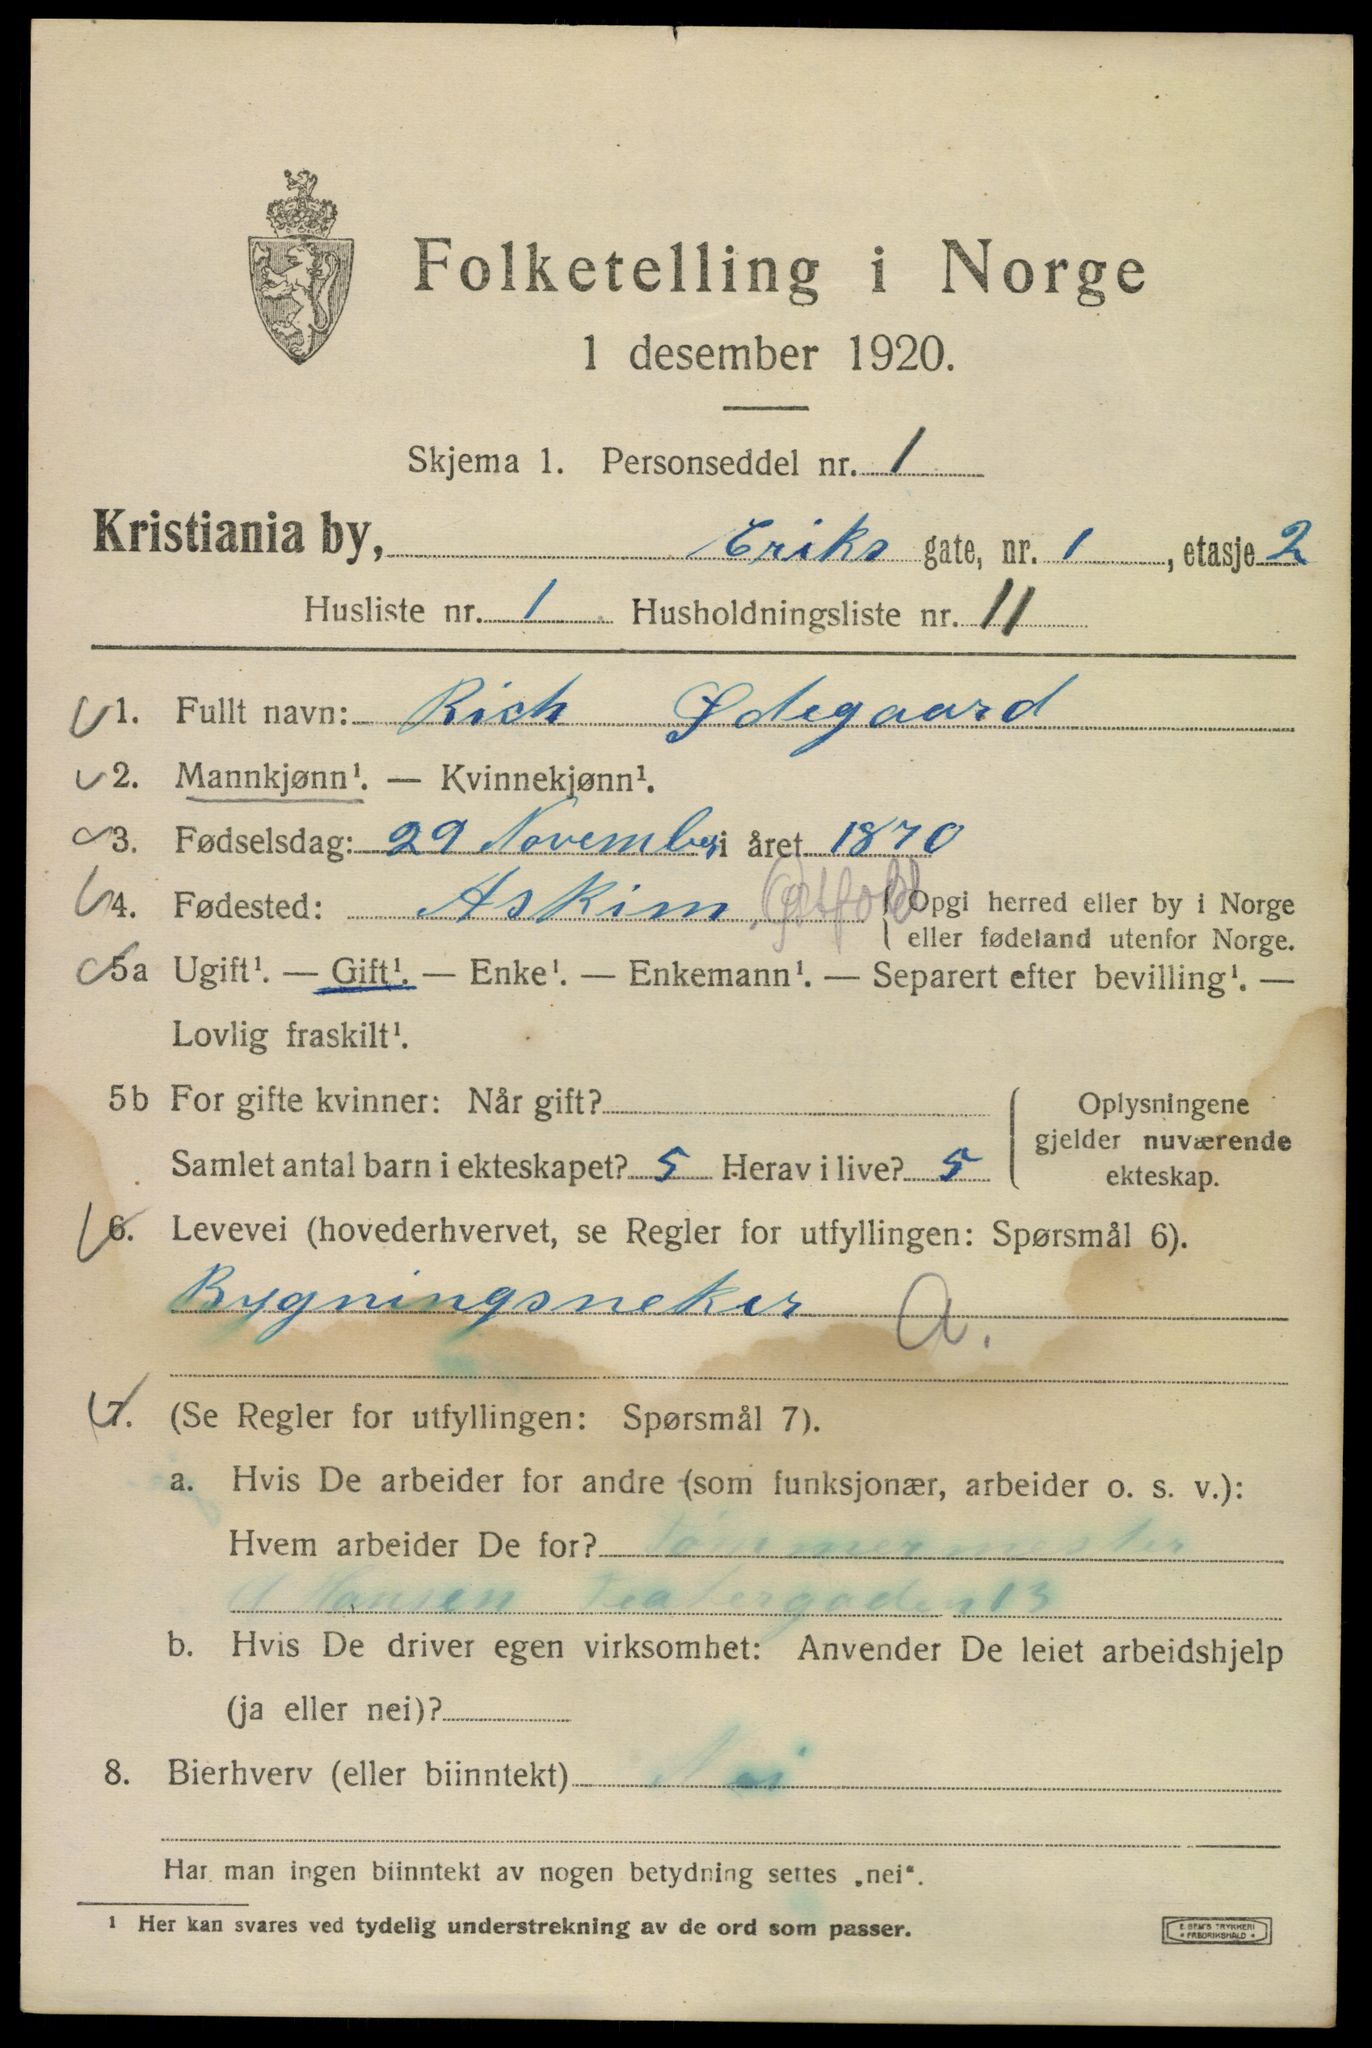 Folketelling i Norge
1 desember 1920.
Skjema 1. Personseddel nr. 1
Kristiania by, Eriks gate, nr. 1, etasje 2
Husliste nr. 1. Husholdningsliste nr. 11
1. Fullt navn: Rich Ødegaard
2. Mannkjønn¹. — Kvinnekjønn¹.
3. Fødselsdag: 29 November i året 1870
4. Fødested: Askim Østfold { Opgi herred eller by i Norge
eller fødeland utenfor Norge.
5a Ugift¹. — Gift¹. — Enke¹. — Enkemann¹. — Separert efter bevilling¹. —
Lovlig fraskilt¹.
5b For gifte kvinner: Når gift?
Samlet antal barn i ekteskapet? 5 Herav i live? 5
Oplysningene
gjelder nuværende
ekteskap.
6. Levevei (hovederhvervet, se Regler for utfyllingen: Spørsmål 6).
Bygningsneker A.
7. (Se Regler for utfyllingen: Spørsmål 7).
a. Hvis De arbeider for andre (som funksjonær, arbeider o. s. v.):
Hvem arbeider De for? Tømmermester
A Hansen Teatergaden 13
b. Hvis De driver egen virksomhet: Anvender De leiet arbeidshjelp
(ja eller nei)?
8. Bierhverv (eller biinntekt) Nei
Har man ingen biinntekt av nogen betydning settes „nei“.
¹ Her kan svares ved tydelig understrekning av de ord som passer.
E. SEM'S TRYKKERI
* FREDRIKSHALD *